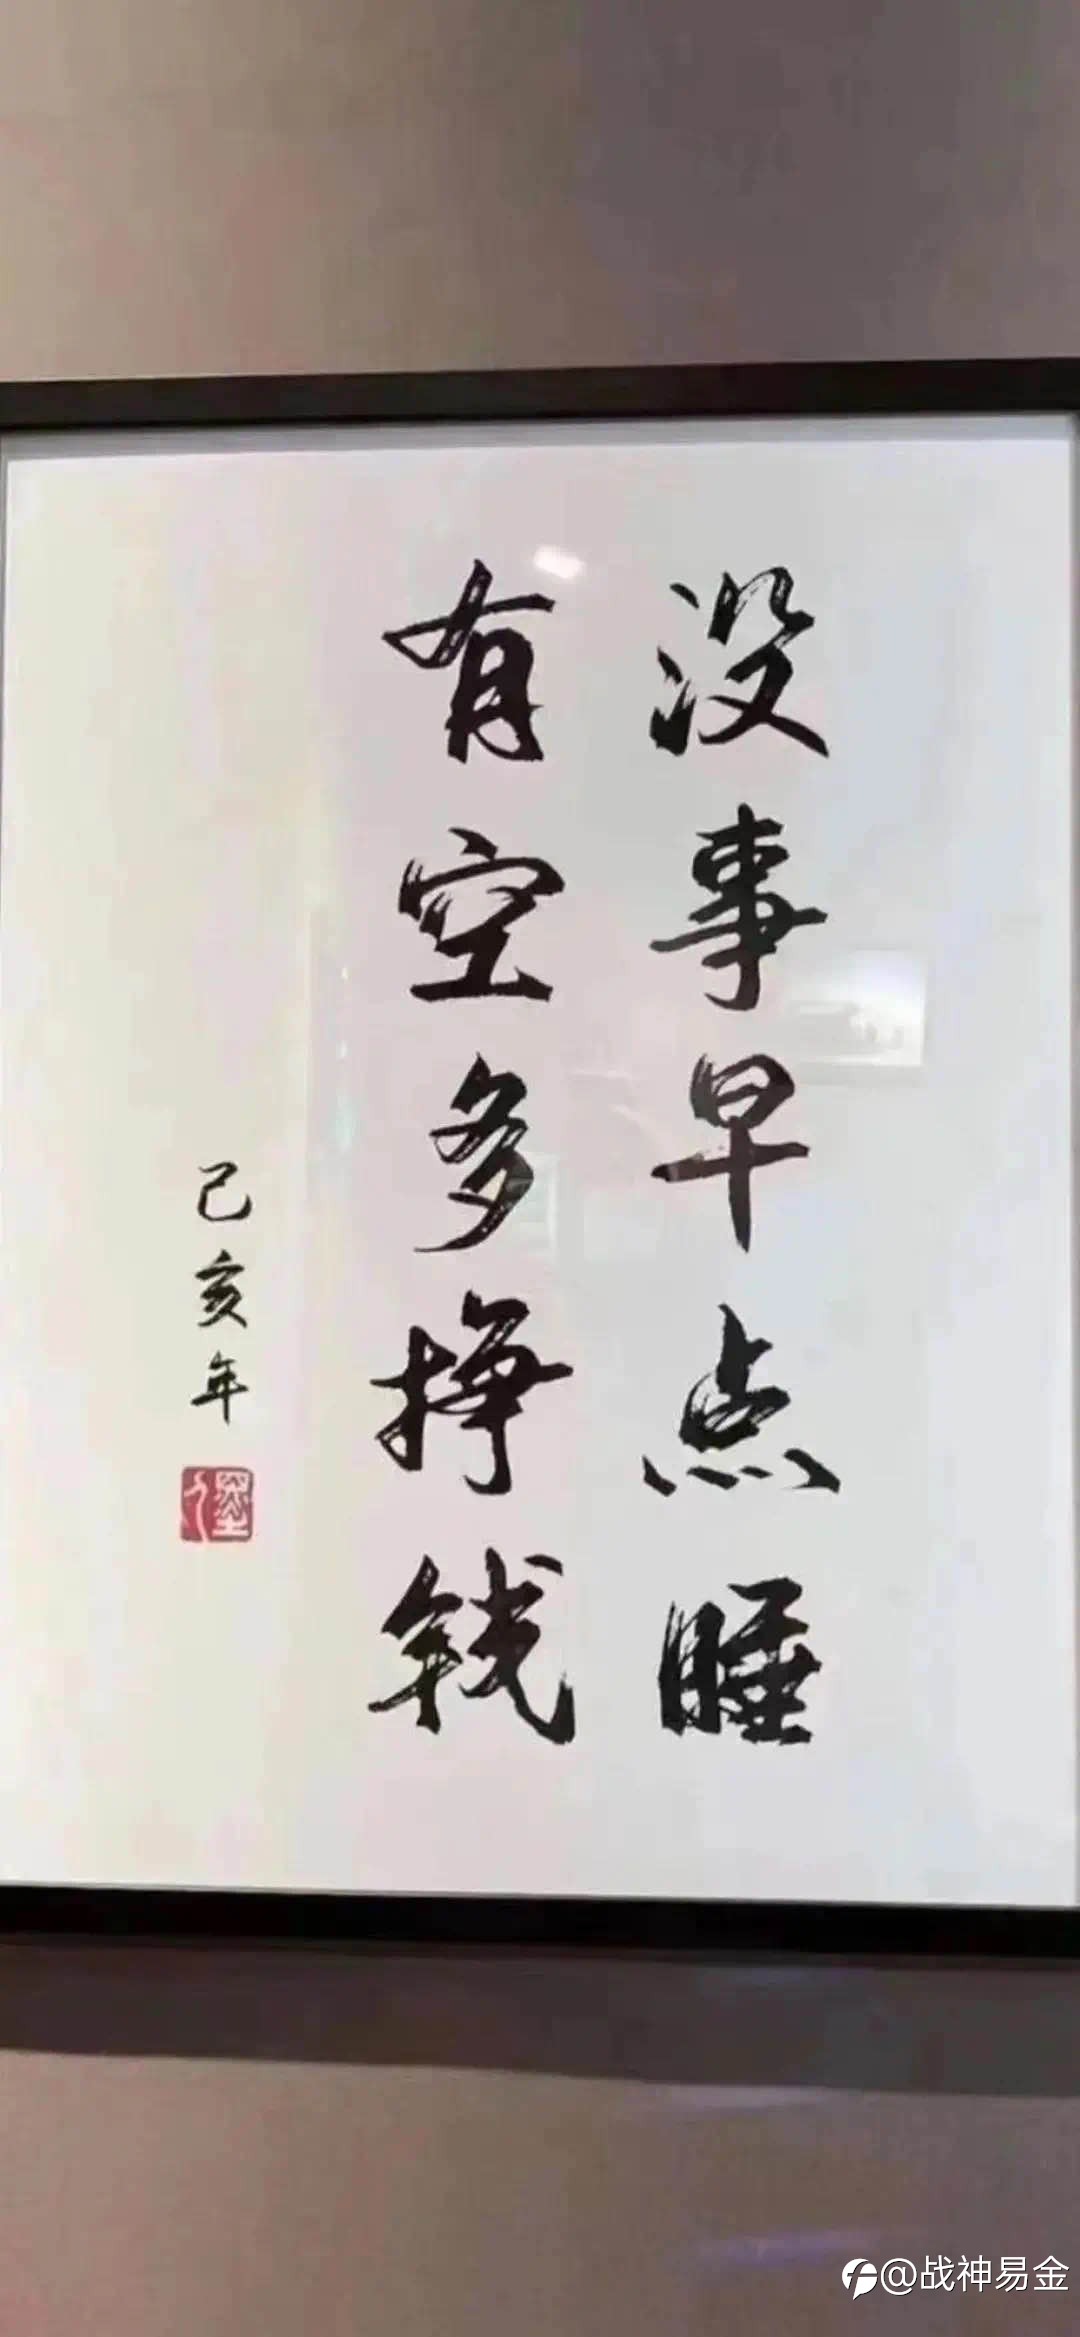 没事早点睡
有空多挣钱
己亥年
@战神易金